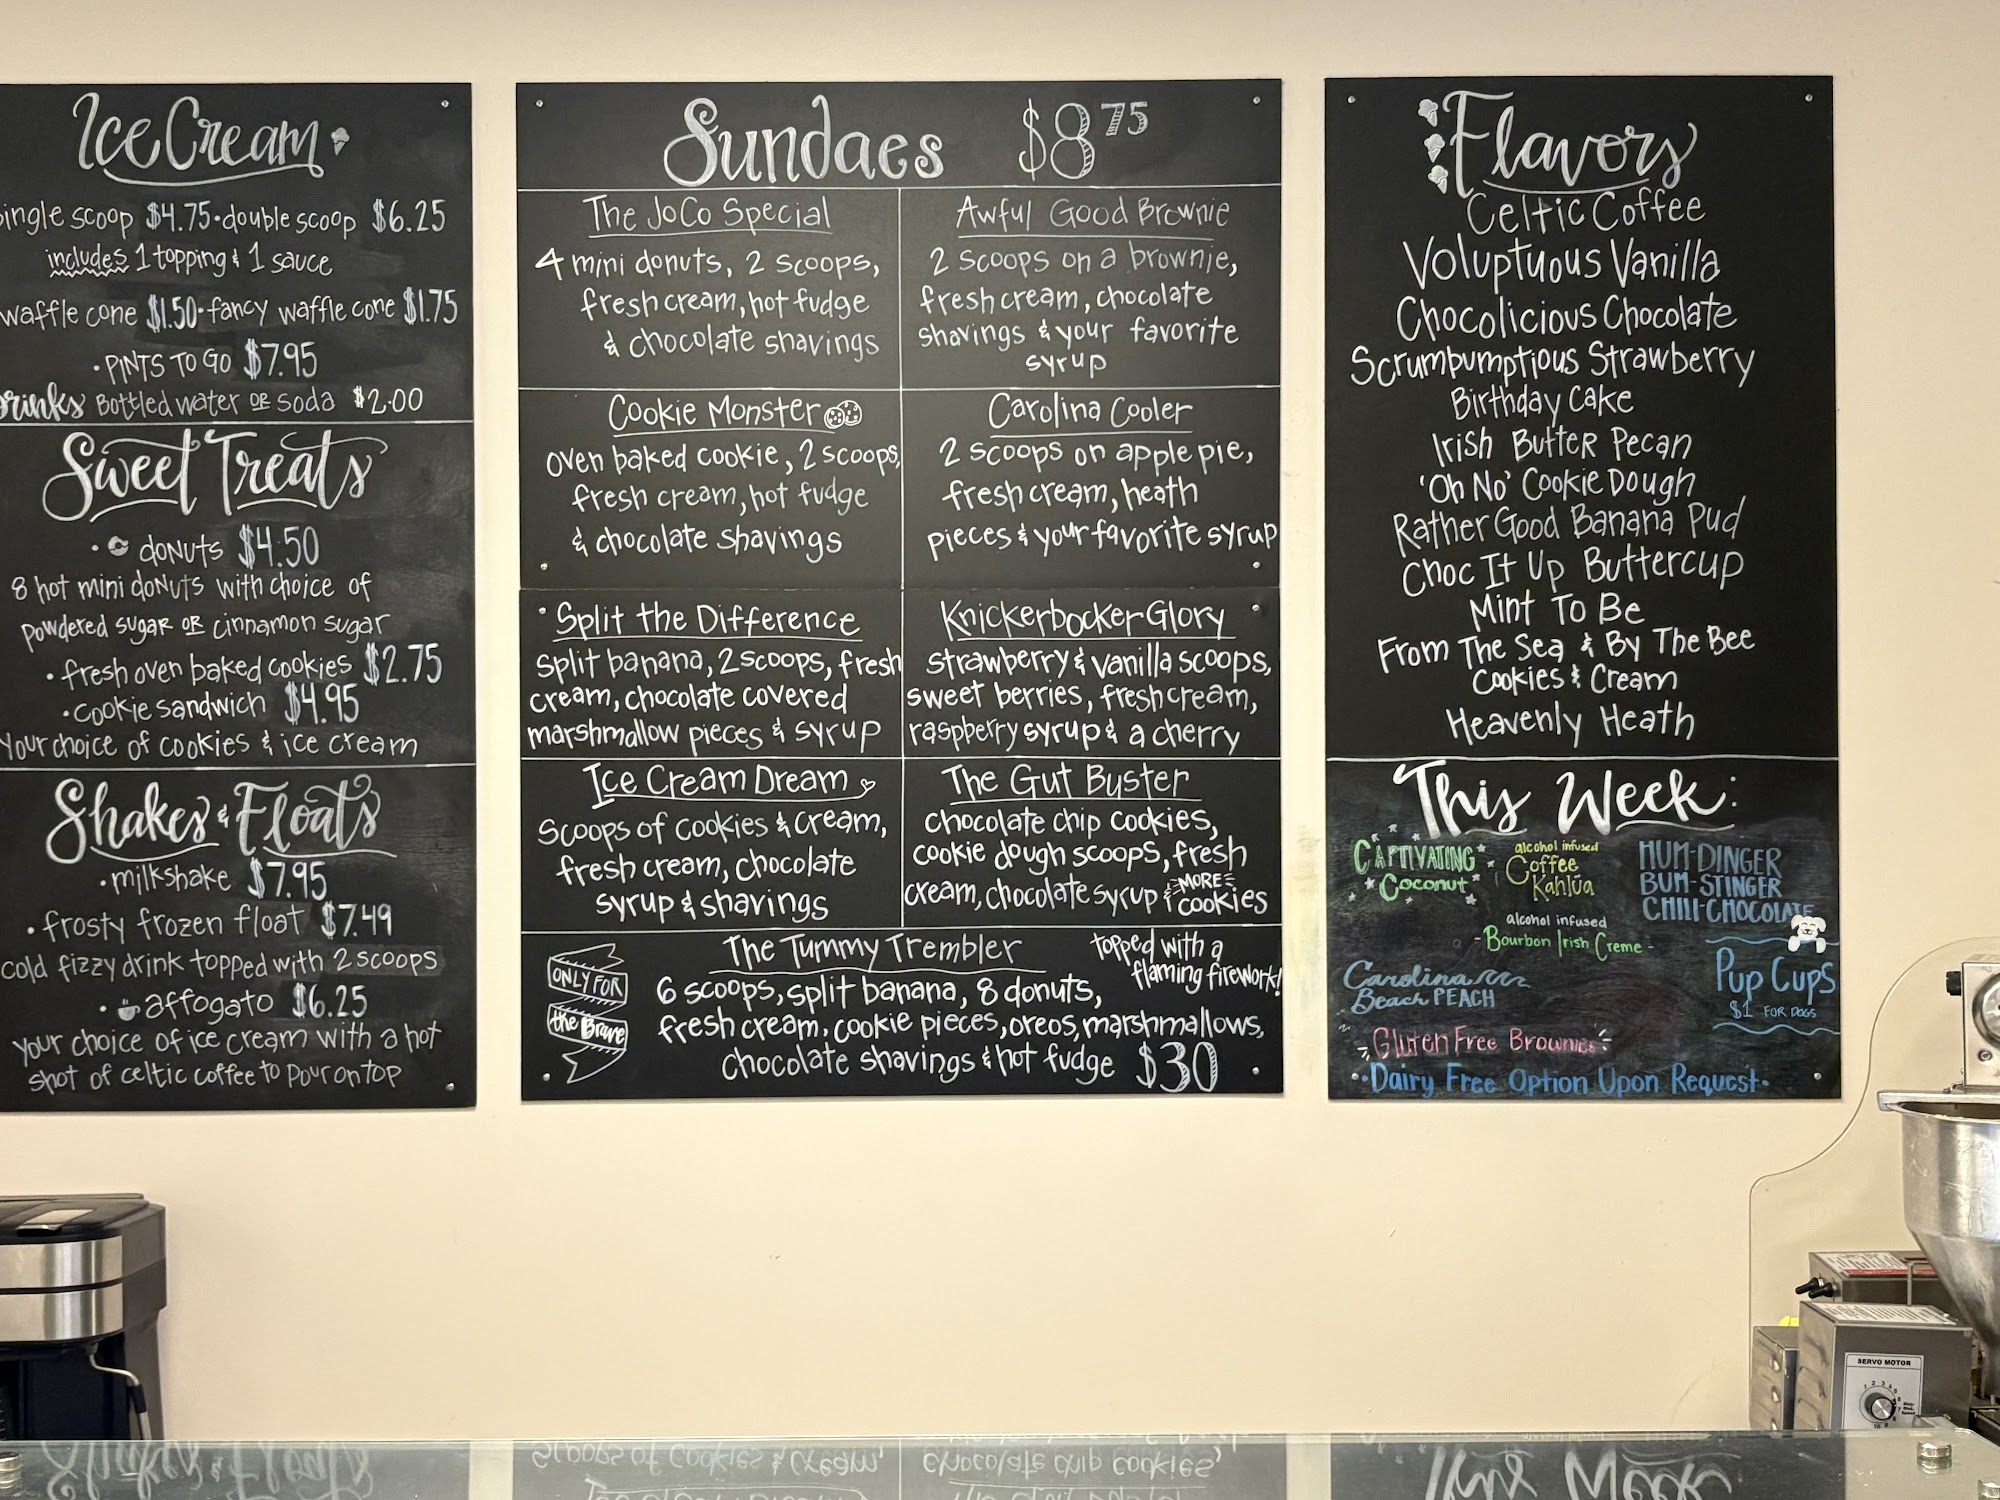 Ice Cream
single scoop $4.75 • double scoop $6.25
includes 1 topping & 1 sauce
waffle cone $1.50 • fancy waffle cone $1.75
• PINTS TO GO $7.95
Drinks Bottled water OR soda $2.00
Sweet Treats
• donuts $4.50
8 hot mini donuts with choice of
powdered sugar OR cinnamon sugar
• fresh oven baked cookies $2.75
• cookie sandwich $4.95
Your choice of cookies & ice cream
Shakes & Floats
• milkshake $7.95
• frosty frozen float $7.49
cold fizzy drink topped with 2 scoops
• affogato $6.25
your choice of ice cream with a hot
shot of celtic coffee to pour on top
Sundaes $8.75
The JoCo Special
4 mini donuts, 2 scoops,
fresh cream, hot fudge
& chocolate shavings
Awful Good Brownie
2 scoops on a brownie,
fresh cream, chocolate
shavings & your favorite
syrup
Cookie Monster
oven baked cookie, 2 scoops,
fresh cream, hot fudge
& chocolate shavings
Carolina Cooler
2 scoops on apple pie,
fresh cream, heath
pieces & your favorite syrup
Split the Difference
split banana, 2 scoops, fresh
cream, chocolate covered
marshmallow pieces & syrup
Knickerbocker Glory
strawberry & vanilla scoops,
sweet berries, fresh cream,
raspberry syrup & a cherry
Ice Cream Dream
scoops of cookies & cream,
fresh cream, chocolate
syrup & shavings
The Gut Buster
chocolate chip cookies,
cookie dough scoops, fresh
cream, chocolate syrup & MORE cookies
ONLY FOR
the Brave
The Tummy Trembler
topped with a
flaming firework!
6 scoops, split banana, 8 donuts,
fresh cream, cookie pieces, oreos, marshmallows,
chocolate shavings & hot fudge $30
Flavors
Celtic Coffee
Voluptuous Vanilla
Chocolicious Chocolate
Scrumbumptious Strawberry
Birthday Cake
Irish Butter Pecan
'Oh No' Cookie Dough
Rather Good Banana Pud
Choc It Up Buttercup
Mint To Be
From The Sea & By The Bee
Cookies & Cream
Heavenly Heath
This Week:
CAPTIVATING
Coconut
alcohol infused
Coffee
Kahlúa
HUM-DINGER
BUM-STINGER
CHILI-CHOCOLATE
alcohol infused
- Bourbon Irish Creme -
Carolina
Beach PEACH
Pup Cups
$1 FOR DOGS
Gluten Free Brownies
• Dairy Free Option Upon Request •
SERVO MOTOR